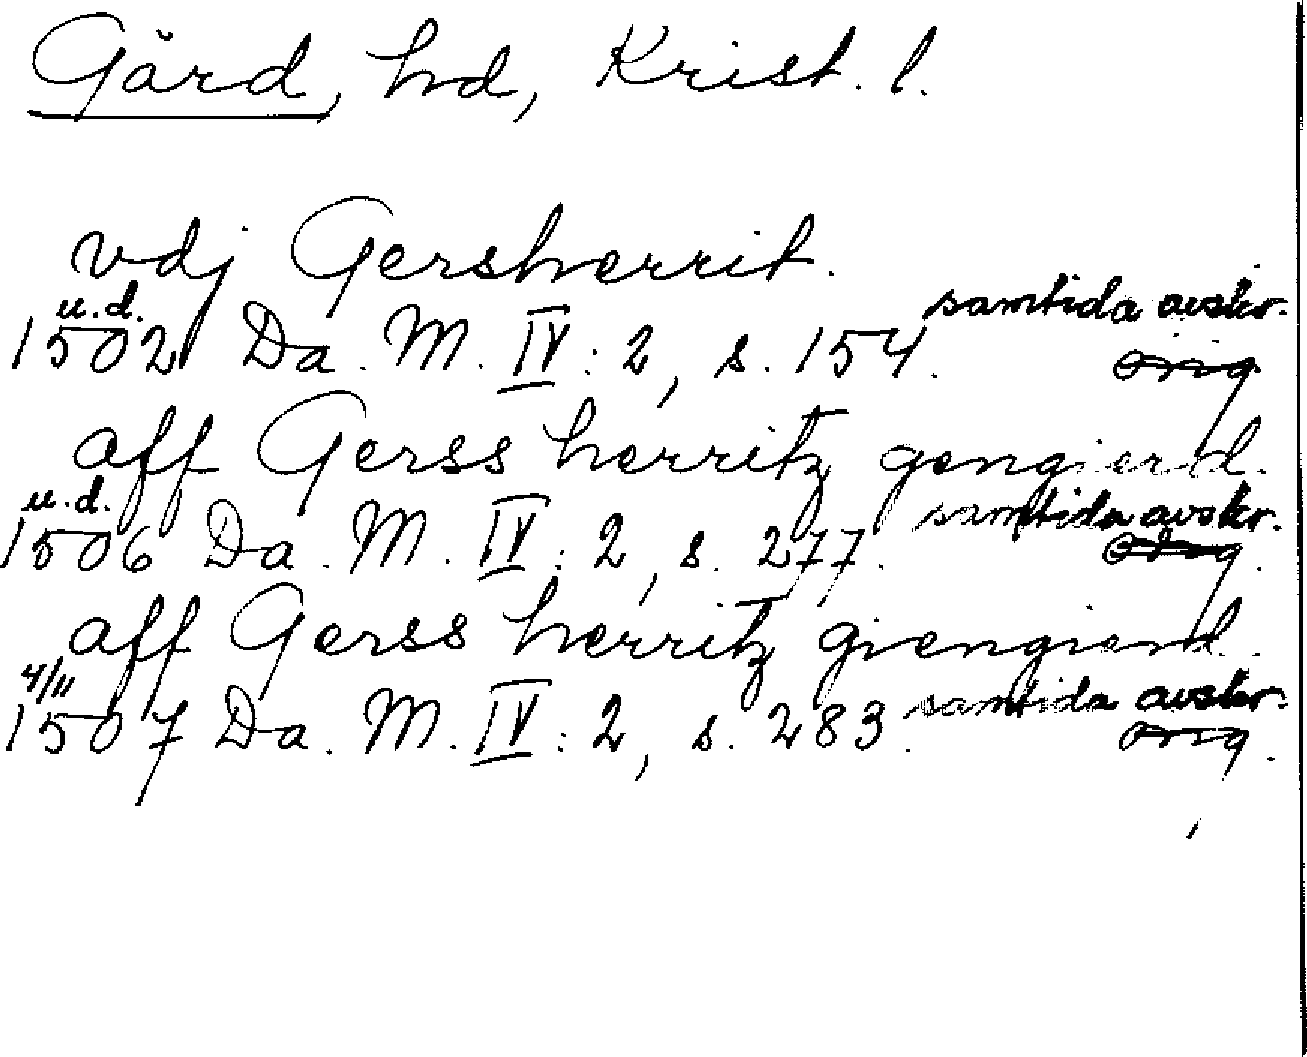 Gärd, hd, Krist. l.
vdj Gersherrit.
u.d. samtida avskr.
1502 Da. M. IV: 2, s. 154. orig
aff Gerss herritz gengierd.
u.d. samtida avskr.
1506 Da. M. IV: 2, s. 277. orig.
aff Gerss herritz giengierd.
4/11 samtida avskr.
1507 Da. M. IV: 2, s. 283. orig.